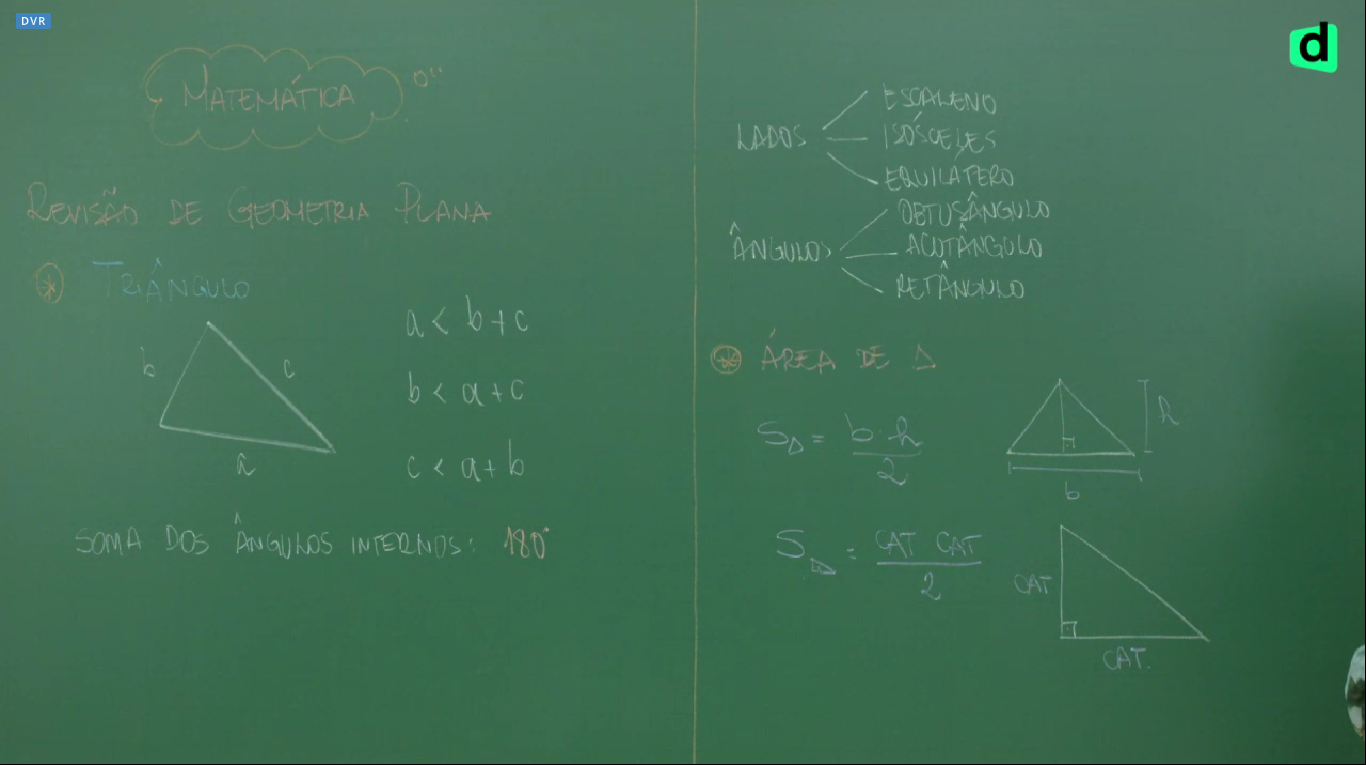 DVR
d
MATEMÁTICA 0"
REVISÃO DE GEOMETRIA PLANA
TRIÂNGULO
b
c
a
a < b + c
b < a + c
c < a + b
SOMA DOS ÂNGULOS INTERNOS: 180°
LADOS
ESCALENO
ISÓSCELES
EQUILÁTERO
ÂNGULOS
OBTUSÂNGULO
ACUTÂNGULO
RETÂNGULO
ÁREA DE Δ
S△ = b·h / 2
h
b
S◺ = CAT CAT / 2
CAT
CAT.